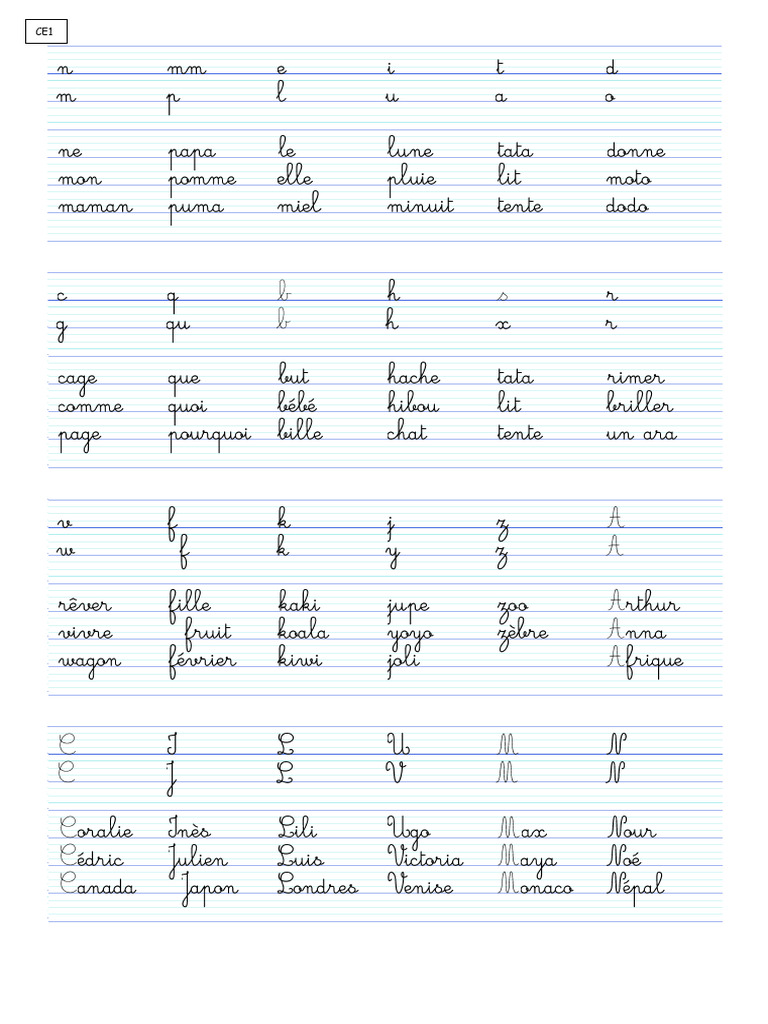 CE1
n mm e i t d
m p l u a o
ne papa le lune tata donne
mon pomme elle pluie lit moto
maman puma miel minuit tente dodo
c q b h s r
g qu b h x r
cage que but hache tata rimer
comme quoi bébé hibou lit briller
page pourquoi bille chat tente un ara
v f k j z A
w f k y z A
rêver fille kaki jupe zoo Arthur
vivre fruit koala yoyo zèbre Anna
wagon février kiwi joli Afrique
C I L U M N
C J L V M N
Coralie Inès Lili Ugo Max Nour
Cédric Julien Luis Victoria Maya Noé
Canada Japon Londres Venise Monaco Népal